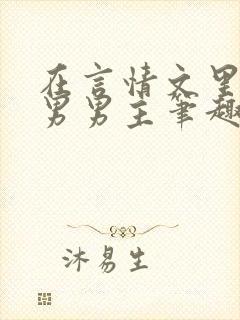 在言情文里
男男主笔趣
沐易生